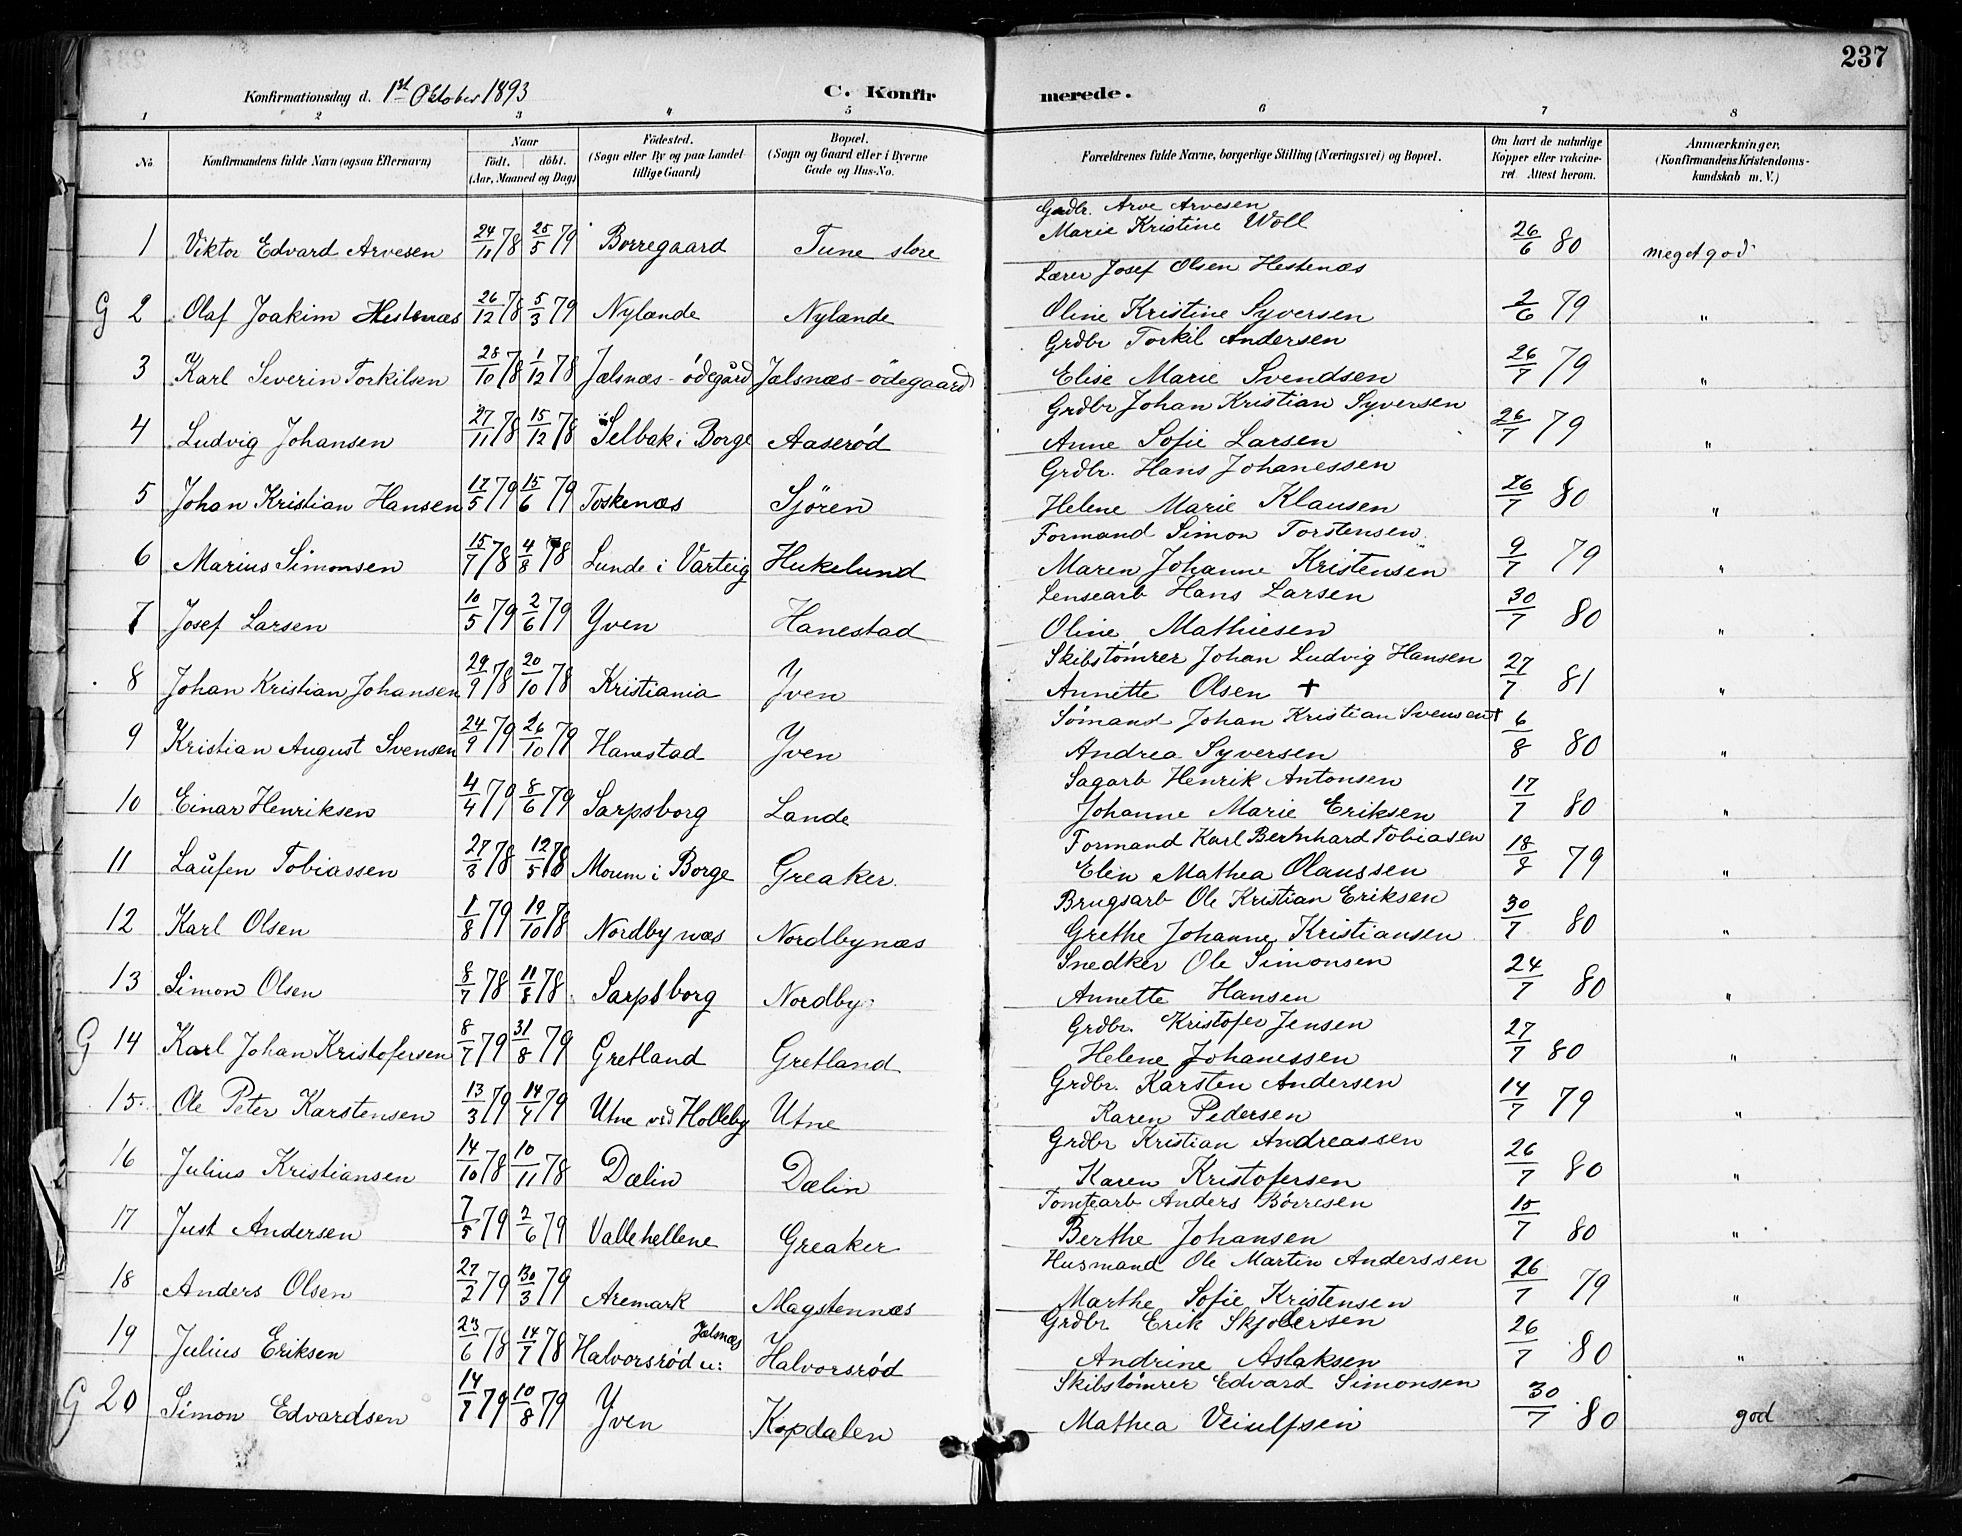 237
Konfirmationsdag d. 1st Oktober 1893 C. Konfirmerede.
1 2 3 4 5 6 7 8
No Konfirmandens fulde Navn (ogsaa Efternavn) Naar født. døbt. (Aar, Maaned og Dag) Fødested. (Sogn eller By og paa Landet tillige Gaard) Bopæl. (Sogn og Gaard eller i Byerne Gade og Hus-No. Forældrenes fulde Navne, borgerlige Stilling (Næringsvei) og Bopæl. Om havt de naturlige Kopper eller vakcineret Attest herom. Anmærkninger. (Konfirmandens Kristendomskundskab m. V.)
Grdbr. Arve Arvesen
1 Viktor Edvard Arvesen 24/11 78 25/5 79 Borregaard Tune store Marie Kristine Woll 26/6 80 meget god
Lærer Josef Olsen Hestenæs
G 2 Olaf Joakim Hestenæs 26/12 78 5/3 79 Nylænde Nylænde Oline Kristine Syversen 2/6 79 "
Grdbr Torkil Andersen
3 Karl Severin Torkilsen 28/10 78 1/12 78 Jælsnæs-ödegård Jælsnæs-ödegaard Elise Marie Svendsen 26/7 79 "
Grdbr Johan Kristian Syversen
4 Ludvig Johansen 27/11 78 15/12 78 Selbak i Borge Aaserød Anne Sofie Larsen 26/7 79 "
Grdbr. Hans Johanessen
5 Johan Kristian Hansen 17/5 79 15/6 79 Toskenæs Sjören Helene Marie Klausen 26/7 80 "
Formand Simon Torstensen
6 Marius Simonsen 15/7 78 4/8 78 Lunde i Varteig Hukelund Maren Johanne Kristensen 9/7 79 "
Lensearb Hans Larsen
7 Josef Larsen 10/5 79 2/6 79 Yven Hanestad Oline Mathiesen 30/7 80 "
Skibstømrer Johan Ludvig Hansen
8 Johan Kristian Johansen 29/9 78 20/10 78 Kristiania Yven Annette Olsen + 27/7 81 "
Sømand Johan Kristian Svensen+
9 Kristian August Svensen 24/9 79 26/10 79 Hanestad Yven Andrea Syversen 6/8 80 "
Sagarb Henrik Antonsen
10 Einar Henriksen 4/4 79 8/6 79 Sarpsborg Lande Johanne Marie Eriksen 17/7 80 "
Formand Karl Bernhard Tobiasen
11 Laufen Tobiassen 27/3 78 12/5 78 Moum i Borge Greaker Elin Mathea Olaussen 18/8 79 "
Brugsarb Ole Kristian Eriksen
12 Karl Olsen 1/8 79 19/10 78 Nordbynæs Nordbynæs Grethe Johanne Kristiansen 30/7 80 "
Snedker Ole Simonsen
13 Simon Olsen 8/7 78 11/8 78 Sarpsborg Nordby Annette Hansen 24/7 80 "
Grdbr. Kristofer Jensen
G 14 Karl Johan Kristofersen 8/7 79 31/8 79 Gretland Gretland Helene Johanessen 27/7 80 "
Grdbr. Karsten Andersen
15. Ole Peter Karstensen 13/3 79 14/4 79 Utne ved Holleby Utne Karen Pedersen 14/7 79 "
Grdbr Kristian Andreassen
16 Julius Kristiansen 14/10 78 10/11 78 Dælin Dælin Karen Kristofersen 26/7 80 "
Tomtearb Anders Børresen
17 Just Andersen 7/5 79 2/6 79 Vallehellene Greaker Berthe Johansen 15/7 80 "
Husmand Ole Martin Anderssen
18 Anders Olsen 27/2 79 30/3 79 Aremark Magstennæs Marthe Sofie Kristensen 26/7 79 "
Grdbr Erik Skjolersen
19 Julius Eriksen 23/6 78 14/7 78 Halvorsrød u: Jælsnæs Halvorsrød Andrine Aslaksen 26/7 80 "
Skibstømrer Edvard Simonsen
G 20 Simon Edvardsen 14/7 79 10/8 79 Yven Kopdalen Mathea Veiulfsen 30/7 80 god